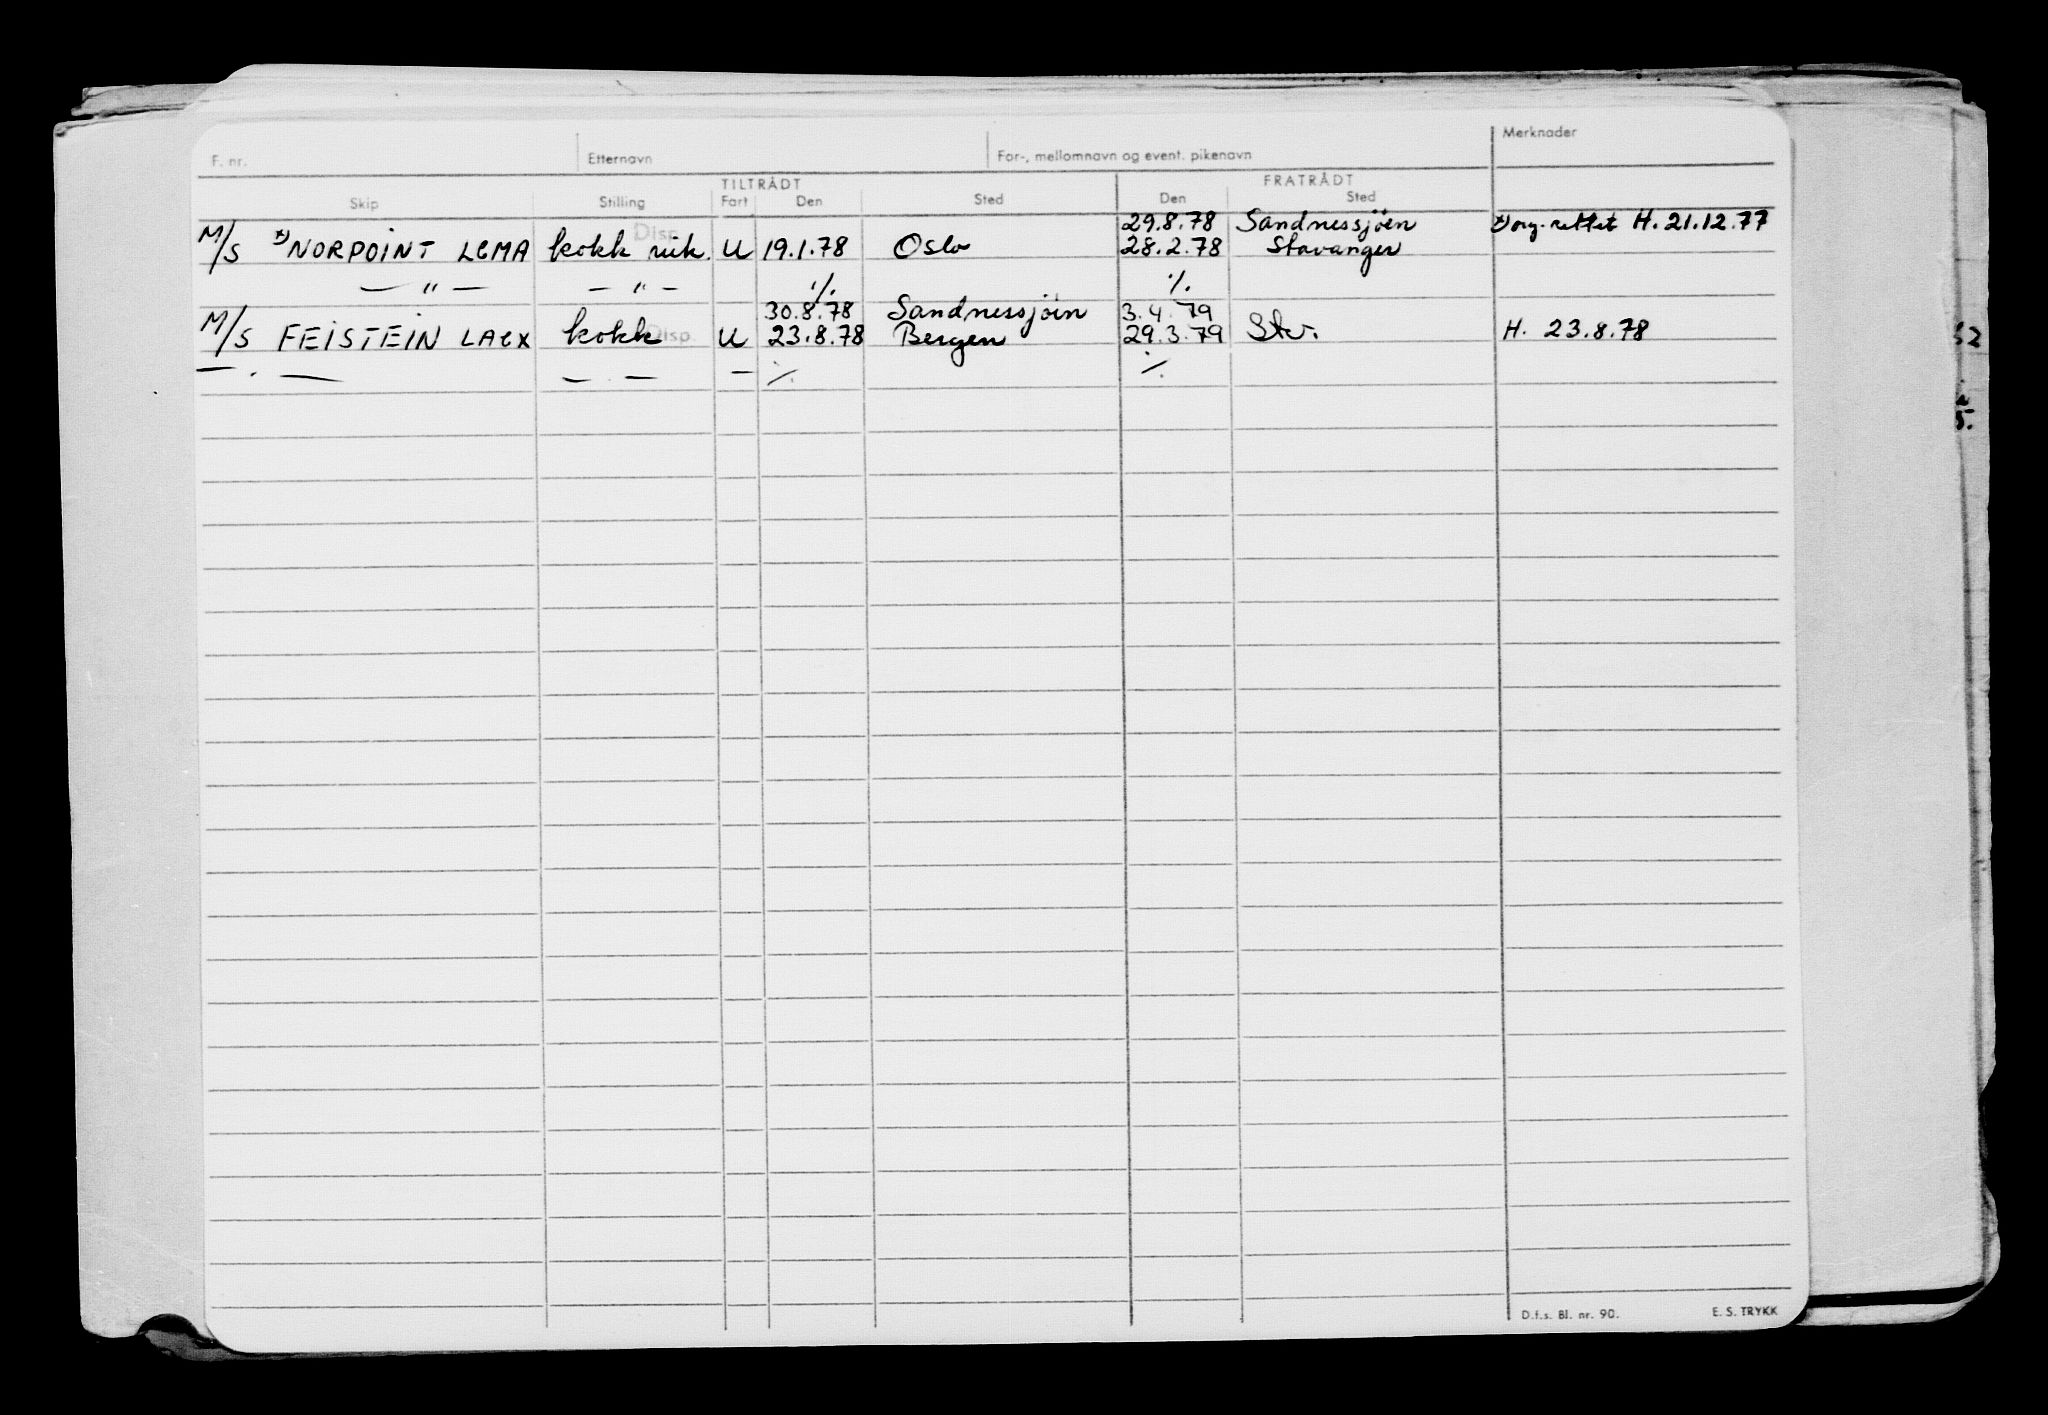 F. nr. Etternavn For-, mellomnavn og event. pikenavn Merknader
TILTRÅDT FRATRÅDT
Skip Stilling Fart Den Sted Den Sted
29.8.78 Sandnessjöen
M/S x) NORPOINT LGMA kokk vik. Disp. U 19.1.78 Oslo 28.2.78 Stavanger x) org. rettet H. 21.12.77
— " — — " — ./. ./.
30.8.78 Sandnessjöen 3.4.79
M/S FEISTEIN LAEX kokk Disp. U 23.8.78 Bergen 29.3.79 Stv. H. 23.8.78
— . — — . — — ./. ./.
D.f.s. Bl. nr. 90. E. S. TRYKK